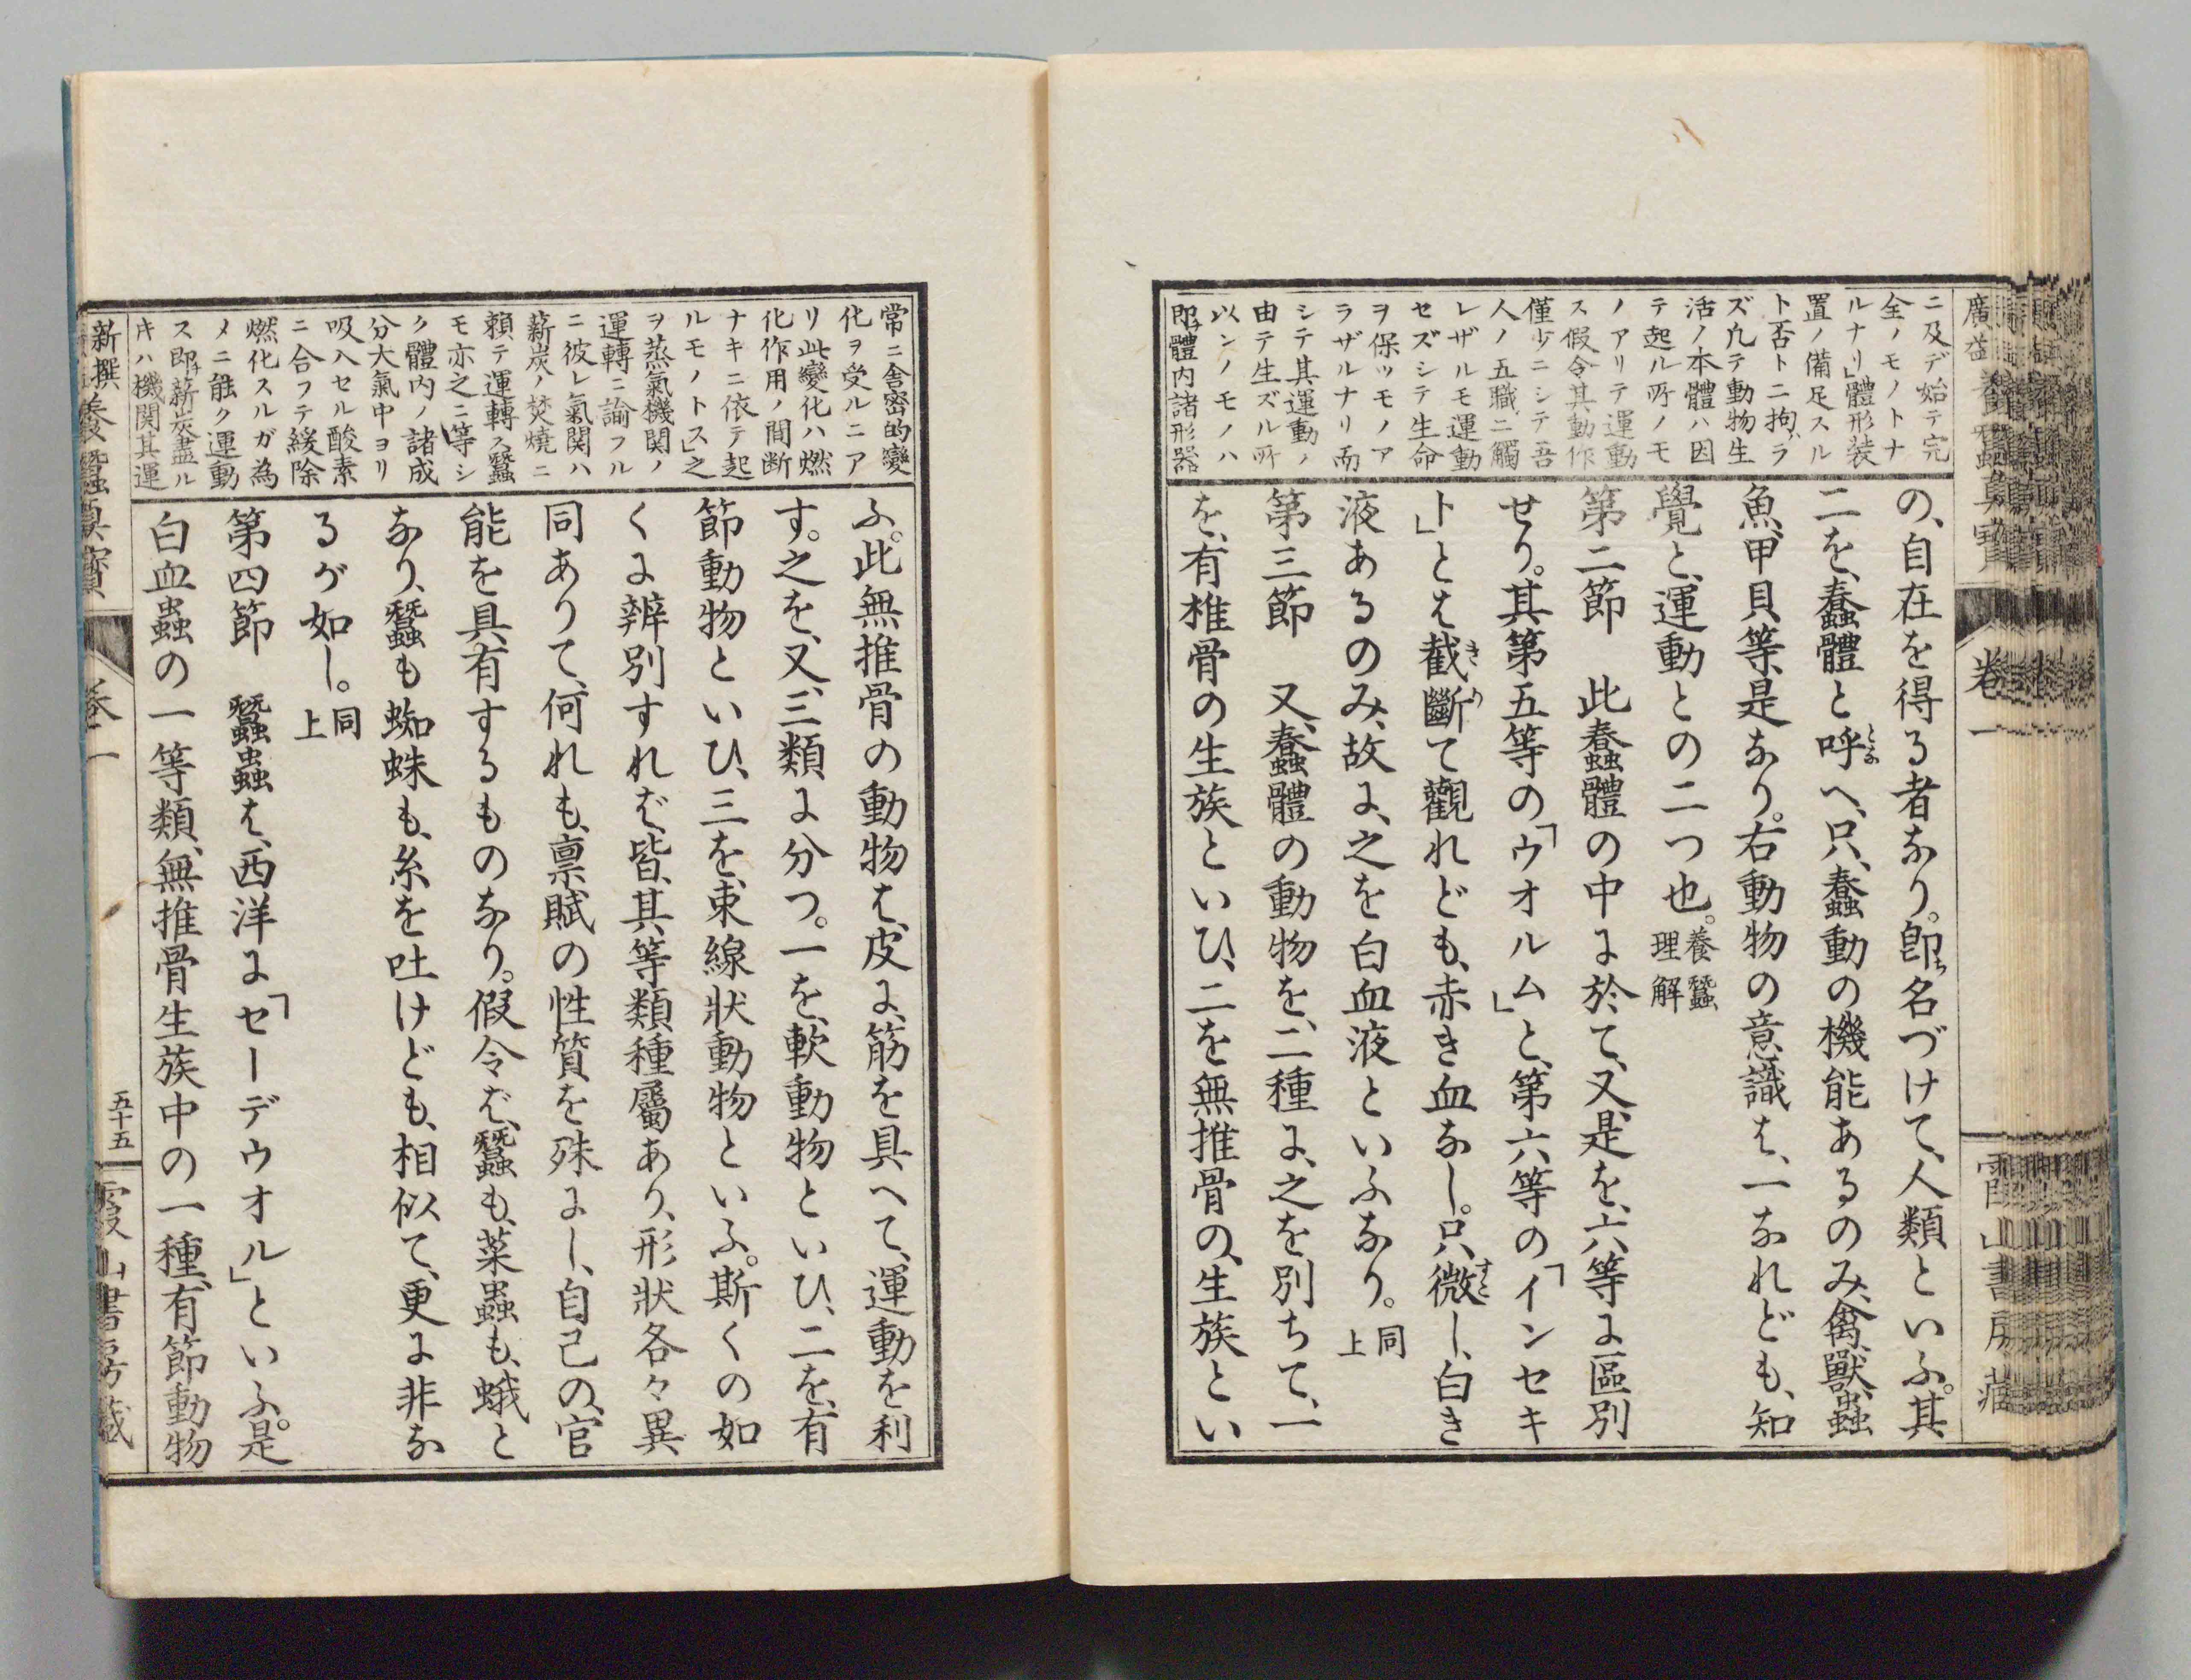 ニ及デ始テ完
全ノモノトナ
ルナリ」體形装
置ノ備足スル
ト否トニ拘ラ
ズ凡テ動物生
活ノ本體ハ因
テ起ル所ノモ
ノアリテ運動
ス假令其動作
僅少ニシテ吾
人ノ五職ニ觸
レザルモ運動
セズシテ生命
ヲ保ツモノア
ラザルナリ而
シテ其運動ノ
由テ生ズル所
以ンノモノハ
即チ體内諸形器
の、自在を得る者なり。即ち名づけて、人類といふ。其
二を、蠢體と呼へ、只、蠢動の機能あるのみ、禽、獸、蟲、
魚、甲貝等、是なり。右動物の意識は、一なれども、知
覺と、運動との二つ也。養蠶理解
第二節　此蠢體の中に於て、又、是を、六等に區別
せり。其第五等の「ウオルム」と、第六等の「インセキ
ト」とは截斷て觀れども、赤き血なし。只、微し、白き
液あるのみ、故に、之を白血液といふなり。同上
第三節　又、蠢體の動物を、二種に、之を別ちて、一
を、有椎骨の生族といひ、二を無推骨の、生族とい
卷一
常ニ舎密的變
化ヲ受ルニア
リ此變化ハ燃
化作用ノ間断
ナキニ依テ起
ルモノトス」之
ヲ蒸氣機関ノ
運轉ニ諭フル
ニ彼レ氣関ハ
薪炭ノ焚燒ニ
頼テ運轉ス蠶
モ亦之ニ等シ
ク體内ノ諸成
分大氣中ヨリ
吸入セル酸素
ニ合フテ緩除
燃化スルガ為
メニ能ク運動
ス即チ薪炭盡ル
キハ機関其運
ふ。此無推骨の動物は、皮に、筋を具へて、運動を利
す。之を、又、三類に分つ。一を、軟動物といひ、二を、有
節動物といひ、三を、束線狀動物といふ。斯くの如
くに辨別すれば、皆、其等類種屬あり、形狀各々異
同ありて、何れも、禀賦の性質を殊にし、自己の、官
能を具有するものなり。假令ば、蠶も、菜蟲も、蛾と
なり、蠶も蜘蛛も、糸を吐けども、相似て、更に非な
るが如し。同上
第四節　蠶蟲は、西洋に「セーデウオル」といふ。是
白血蟲の一等類、無推骨生族中の一種、有節動物
新撰養蠶眞寶
卷一
五十五
霞山書房藏